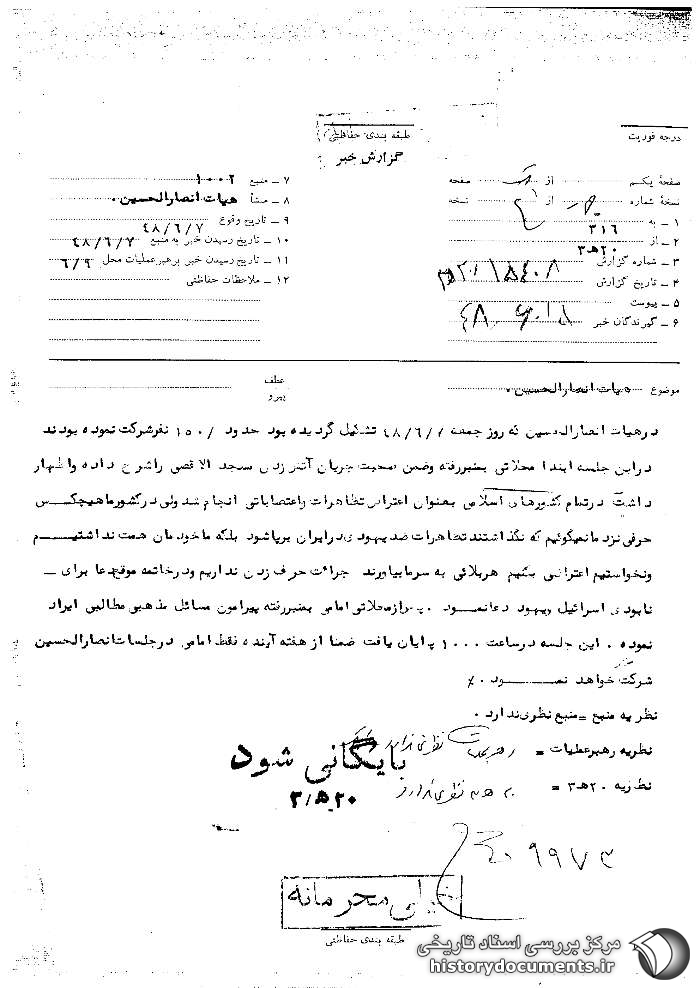 درجه فوریت
طبقه بندی حفاظتی
گزارش خبر
صفحه یکم از صفحه
نسخه شماره از نسخه
۱ ــ به ۳۱۶
۲ ــ از ۲۰ هـ ۳
۳ ــ شماره گزارش
۴ ــ تاریخ گزارش
۵ ــ پیوست
۶ ــ گیرندگان خبر
۷ ــ منبع ۱۰۰۲
۸ ــ منشأ هیات انصارالحسین .
۹ ــ تاریخ وقوع ۴۸/۶/۷
۱۰ ــ تاریخ رسیدن خبر به منبع ۴۸/۶/۷
۱۱ ــ تاریخ رسیدن خبر برهبرعملیات محل ۶/۹
۱۲ ــ ملاحظات حفاظتی
موضوع هیات انصارالحسین .
عطف
پیرو
درهیات انصارالحسین که روز جمعه ۴۸/۶/۷ تشکیل گردیده بود حدود ۱۵۰ نفرشرکت نموده بودند
دراین جلسه ابتدا محلاتی بمنبررفته وضمن صحبت جریان آتش زدن مسجد الاقصی راشرح داده واظهار
داشت درتمام کشورهای اسلامی بعنوان اعتراض تظاهرات واعتصاباتی انجام شد ولی درکشورماهیچکس
حرفی نزد مانمیگوئیم که نگذاشتند تظاهرات ضدیهودی درایران برپاشود بلکه ماخودمان همت نداشتیم
ونخواستیم اعتراضی بکنیم هربلائی به سرمابیاورند جرائت حرف زدن نداریم ودرخاتمه موقع دعا برای ــ
نابودی اسرائیل ویهود دعانمود . پس ازمحلاتی امامی بمنبررفته پیرامون مسائل مذهبی مطالبی ایراد
نموده . این جلسه درساعت ۱۰۰۰ پایان یافت ضمنا از هفته آینده فقط امامی درجلسات انصارالحسین
شرکت خواهد نمود . ٪
نظریه منبع = منبع نظری ندارد .
نظریه رهبرعملیات = رهبر عملیات نظری ندارد
بایگانی شود
نظریه ۲۰ هـ ۳ = ۲۰ هـ ۳ نظری ندارد
۲۰ هـ ۳
۹۹۷۳
خیلی محرمانه
طبقه بندی حفاظتی
مرکز بررسی اسناد تاریخی
historydocuments.ir